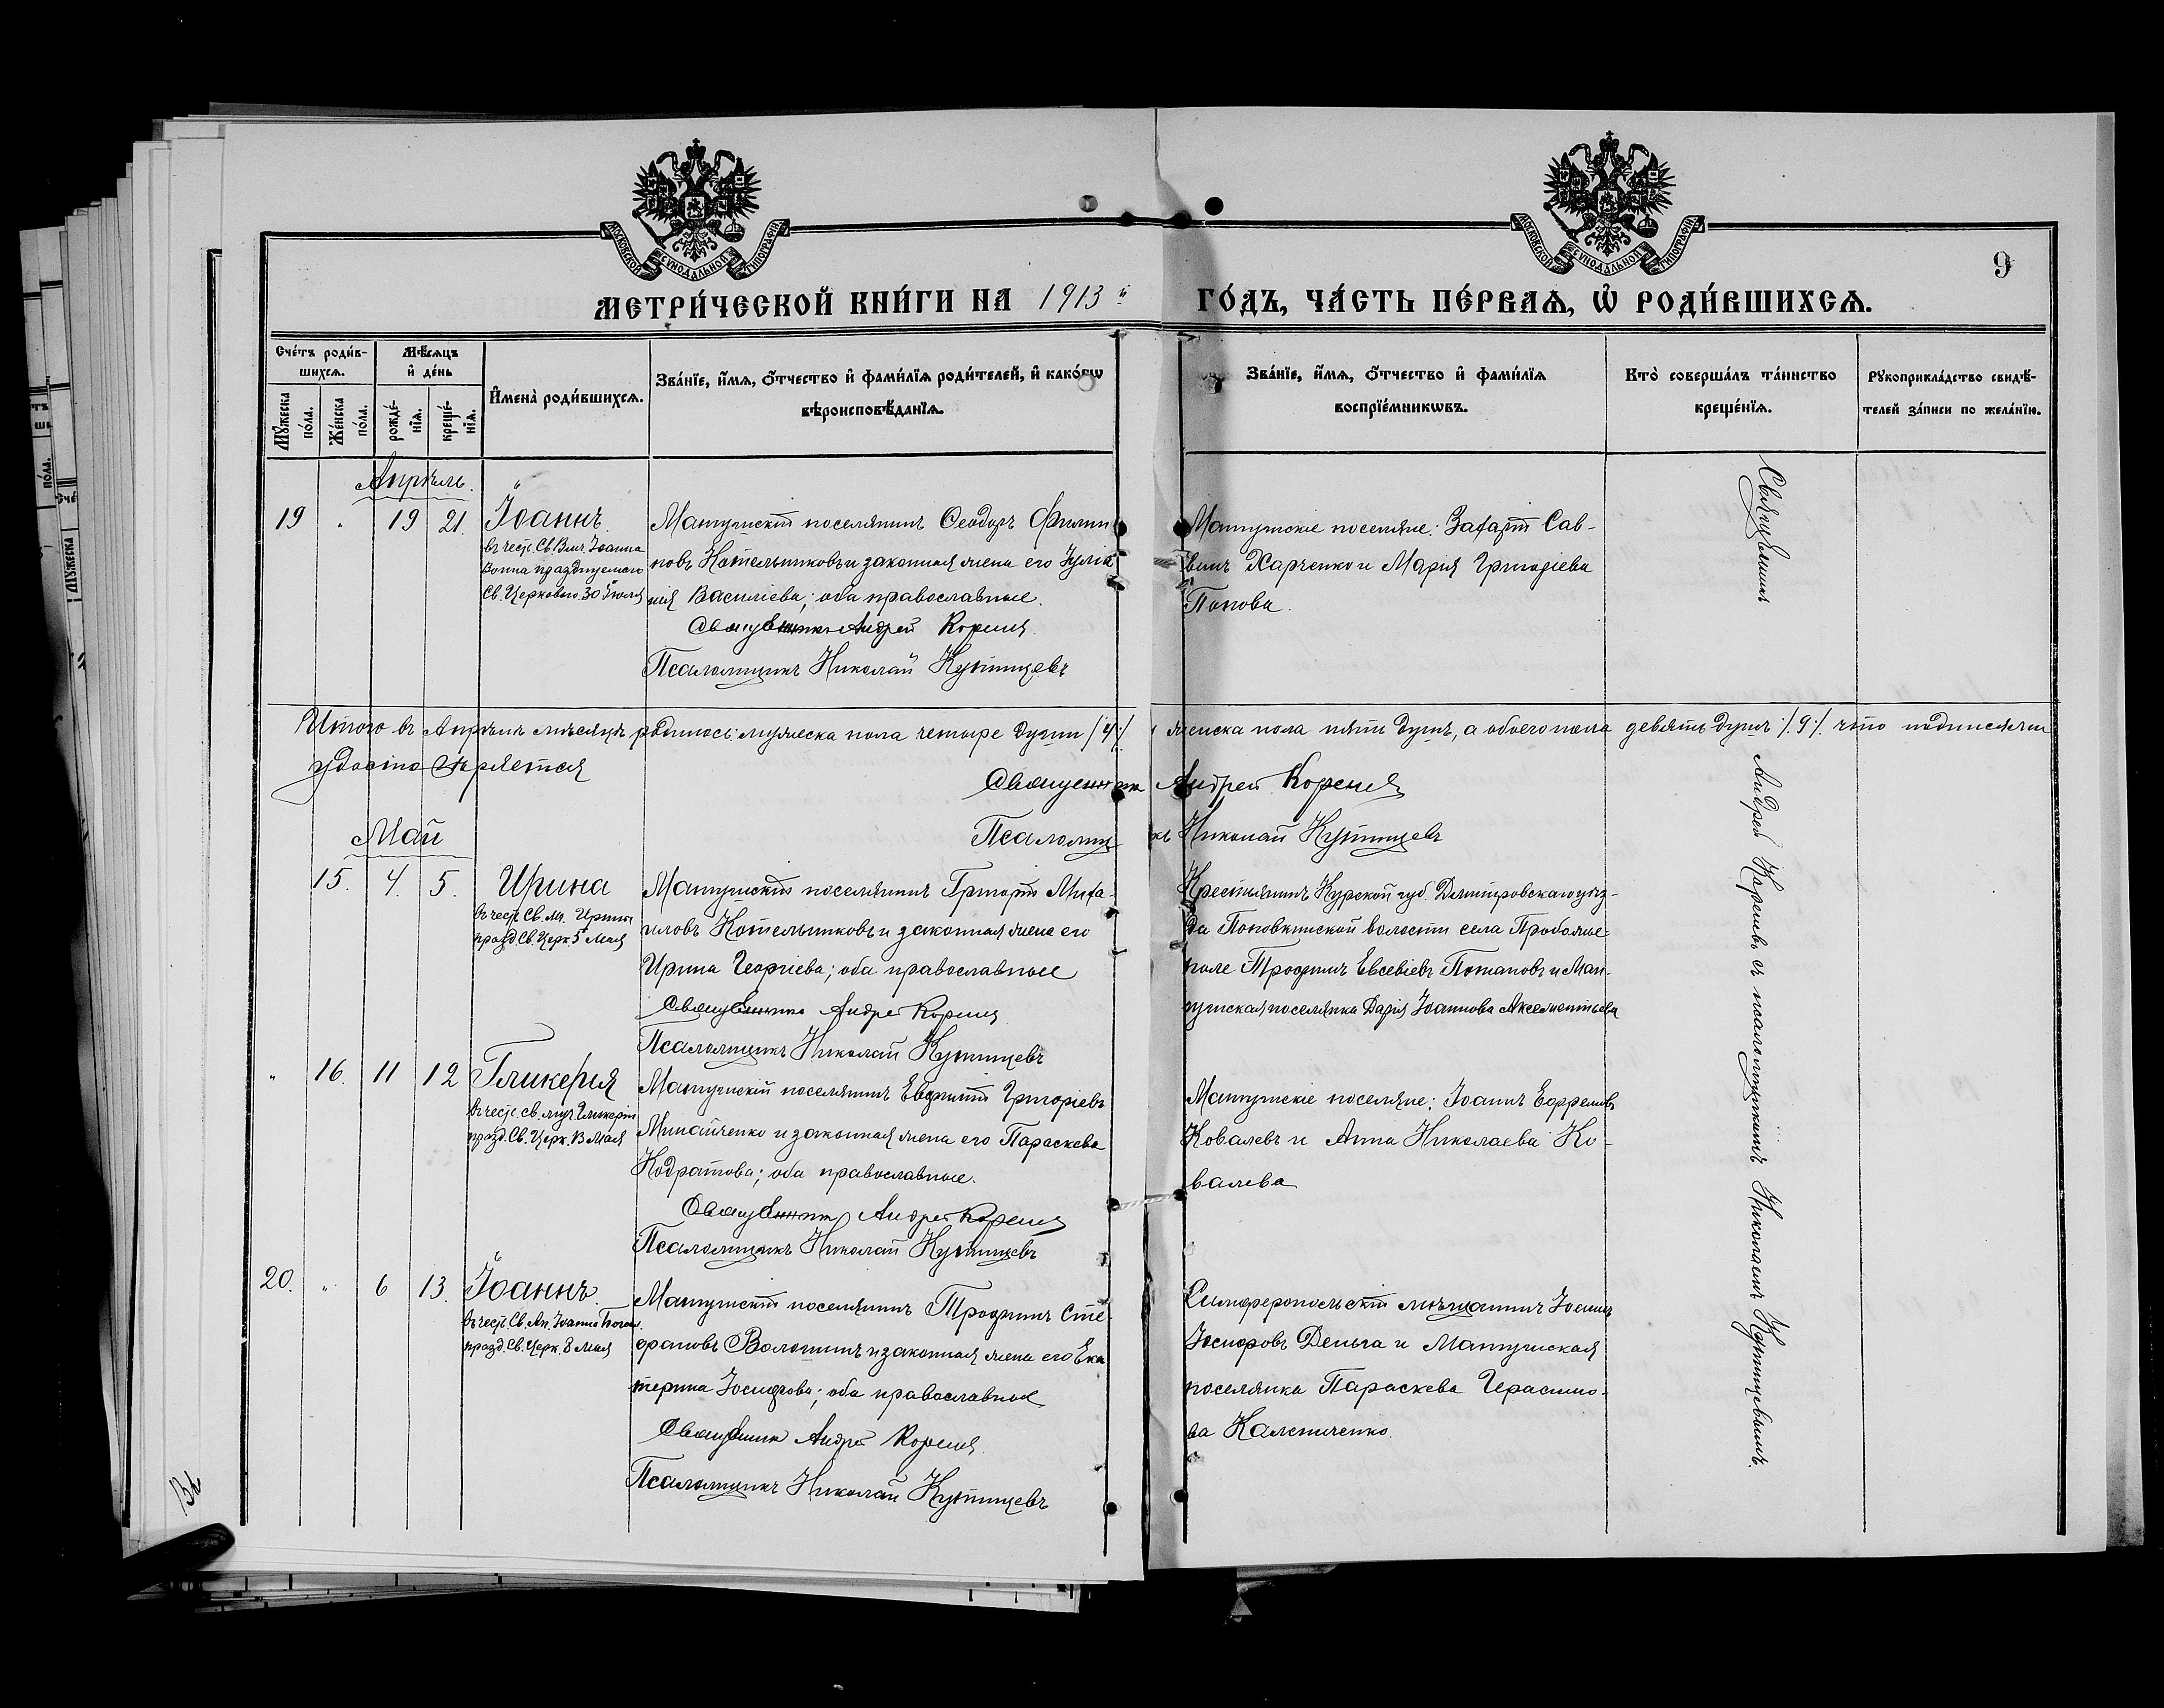 МОСКОВСКОЙ СѴНОДАЛЬНОЙ ТИПОГРАФІИ
МОСКОВСКОЙ СѴНОДАЛЬНОЙ ТИПОГРАФІИ
9
МЕТРИ́ЧЕСКОЙ КНИ́ГИ НА 1913й ГО́ДЪ, ЧА́СТЬ ПЕ́РВАЯ, Ѡ РОДИ́ВШИХСЯ.
Сче́тъ роди́в-
шихся.
Мѣ́сяцъ
и де́нь
Му́жеска
по́ла.
Же́нска
по́ла.
рожде́-
нія.
креще́-
нія.
Имена̀ роди́вшихся.
Зва́нїе, и́мя, о́тчество и фами́лїя роди́телей, и како́гѡ
вѣроисповѣ́данїя.
Зва́нїе, и́мя, о́тчество и фами́лїя
воспрїе́мникѡвъ.
Кто̀ соверша́лъ та́инство
креще́нїя.
Рукоприкла́дство свидѣ́-
телей за́писи по жела́нїю.
Апрѣль.
19 " 19 21. Іоаннъ.
въ честь Св. Влмч. Іоанна
воина празднуемаго
Св. Церковью 30 Іюля
Мангушскій поселянинъ Ѳеодоръ Филип
повъ Котельниковъ и законная жена его Іулiа
нія Василіева; оба православные.
Священникъ Андрей Кореня
Псаломщикъ Николай Купинцевъ
Мангушскіе поселяне: Захарій Сав-
винъ Харченко и Марія Григоріева
Попова.
Священникъ
Андрей Кореневъ съ псаломщикомъ Николаемъ Купинцевымъ.
Итого въ Апрѣлѣ мѣсяцѣ родилось: мужеска пола четыре души /4/. женска пола пять душъ, а обоего пола девять душъ /.9/. что подписями
удостовѣряется
Священникъ Андрей Кореня
Псаломщикъ Николай Купинцевъ
Май
15. 4. 5. Ирина
въ честь Св. мч. Ирины
празд. Св. Церк. 5 Мая
Мангушскій поселянинъ Григорій Миха-
иловъ Котельниковъ и законная жена его
Ирина Георгіева; оба православные
Священникъ Андрей Кореня
Псаломщикъ Николай Купинцевъ
Крестьянинъ Курской губ. Дмитровскаго уѣз-
да Поповкинской волости села
поле Трофимъ Евсевіевъ Потаповъ и Ман-
гушская поселянка Дарія Іоаннова Аксентьева
" 16. 11 12 Гликерія
въ честь св. муч. Гликеріи
празд. Св. Церк. 13 Мая
Мангушскій поселянинъ Евфимій Григоріевъ
Минайченко и законная жена его Параскева
Кодратова; оба православные.
Священникъ Андрей Кореня
Псаломщикъ Николай Купинцевъ
Мангушскіе поселяне: Іоаннъ Ефремовъ
Ковалевъ и Анна Николаева Ко-
валева
20. " 6 13. Іоаннъ.
въ честь Св. Ап. Іоанна Богосл.
празд. Св. Церк. 8 Мая
Мангушскій поселянинъ Трофимъ Сте-
фановъ Волошинъ и законная жена его Ека
терина Іосифова; оба православные
Священникъ Андрей Кореня
Псаломщикъ Николай Купинцевъ
Симферопольскій мѣщанинъ Іоаннъ
Іосифовъ Деньга и Мангушская
поселянка Параскева Герасимо-
ва Калениченко.